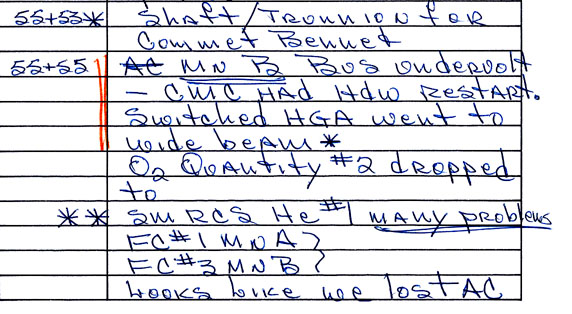 55+53* Shaft/TRUNNION for
Commet Bennet
55+55 AC MN B Bus undervolt
- CMC HAd Hdw RESTART.
Switched HGA went to
wide beam *
O₂ Quantity #2 dropped
to
** SM RCS He #1 many problems
FC#1 MN A }
FC#3 MN B }
Looks like we lost AC